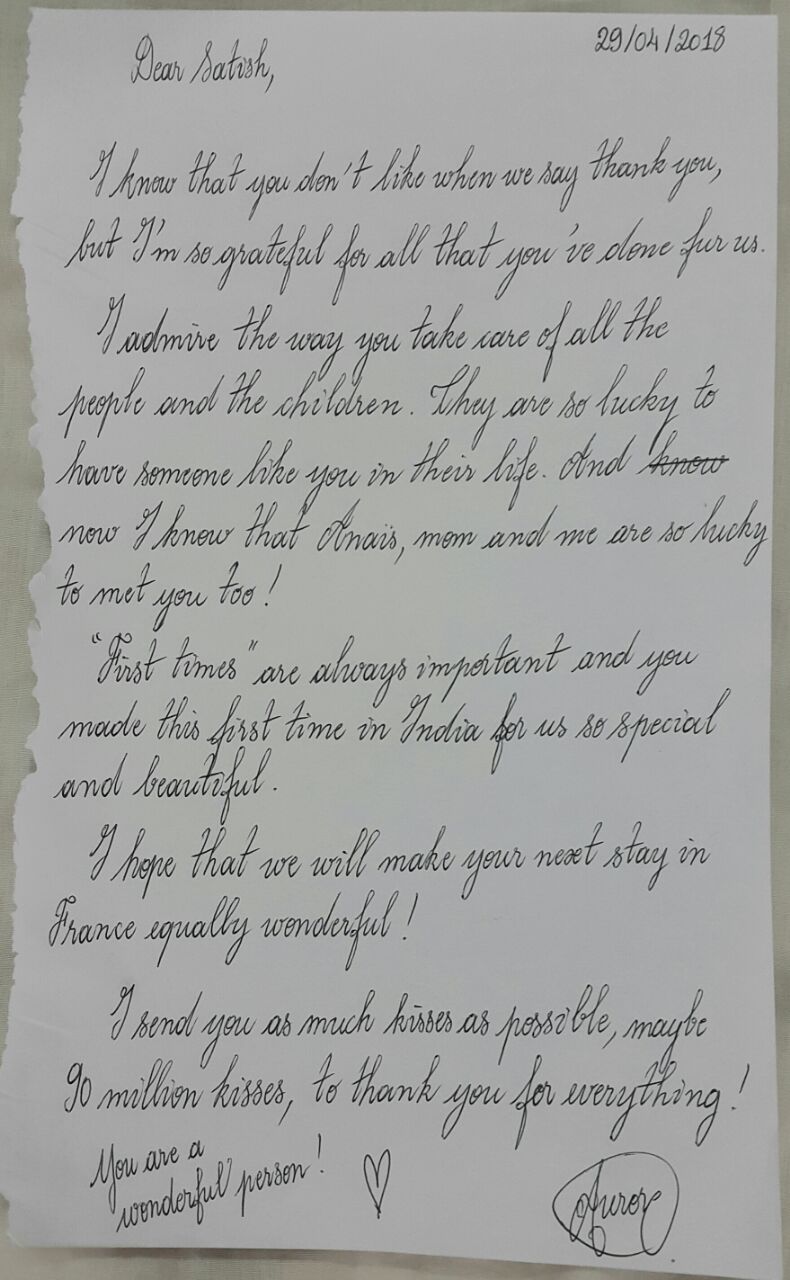 29/04/2018
Dear Satish,
I know that you don't like when we say thank you,
but I'm so grateful for all that you've done fur us.
I admire the way you take care of all the
people and the children. They are so lucky to
have someone like you in their life. And know
now I know that Anaïs, mom and me are so lucky
to met you too !
"First times" are always important and you
made this first time in India for us so special
and beautiful.
I hope that we will make your next stay in
France equally wonderful !
I send you as much kisses as possible, maybe
90 million kisses, to thank you for everything !
You are a
wonderful person !
Auror